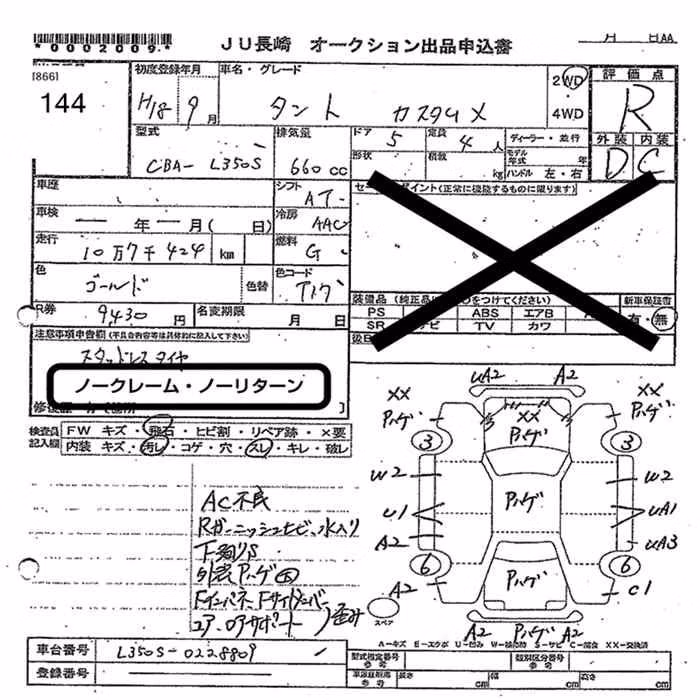 *0002009*
JU長崎 オークション出品申込書
月 日AA
[866]
144
初度登録年月
H18 9月
車名・グレード
タント カスタムX
2WD
4WD
評価点
R
外装 内装
D C
型式
CBA- L350S
排気量
660cc
ドア 5
定員 4人
形状
積載 kg
ディーラー・並行
モデル年式 年
ハンドル 左・右
車歴
シフト AT
車検 年 月(日)
冷房 AAC
走行 10万7千424 km
燃料 G
色 ゴールド
色替
色コード
R券 9430円
名変期限 月 日
ポイント(正常に機能するものに限ります)
装備品(純正品に○をつけてください)
PS ABS エアB
SR ナビ TV カワ
新車保証書
有・無
注意事項申告欄(不具合内容等は具体的に記入して下さい)
スタッドレスタイヤ
ノークレーム・ノーリターン
検査員記入欄
FW キズ・飛石・ヒビ割・リペア跡・×要
内装 キズ・汚レ・コゲ・穴・スレ・キレ・破レ
AC不良
Rガーニッシュヒビ、水入り
下廻りS
外装Pハゲ大
Fインパネ、Fサイドメンバー
コア、ロアサポート
歪み
uA2 A2
XX Pハゲ
XX
XX Pハゲ
3 3
W2 Pハゲ W2
u1 uA1
A2 uA3
6 6
A2 Pハゲ C1
スペア
A2 Pハゲ A2
A=キズ E=エクボ U=凹み W=補修跡 S=サビ C=腐食 XX=交換済
車台番号 L350S-0228809
登録番号
型式指定番号 参考
類別区分番号 参考
車両証明書 参考
長さ cm
幅 cm
高さ cm